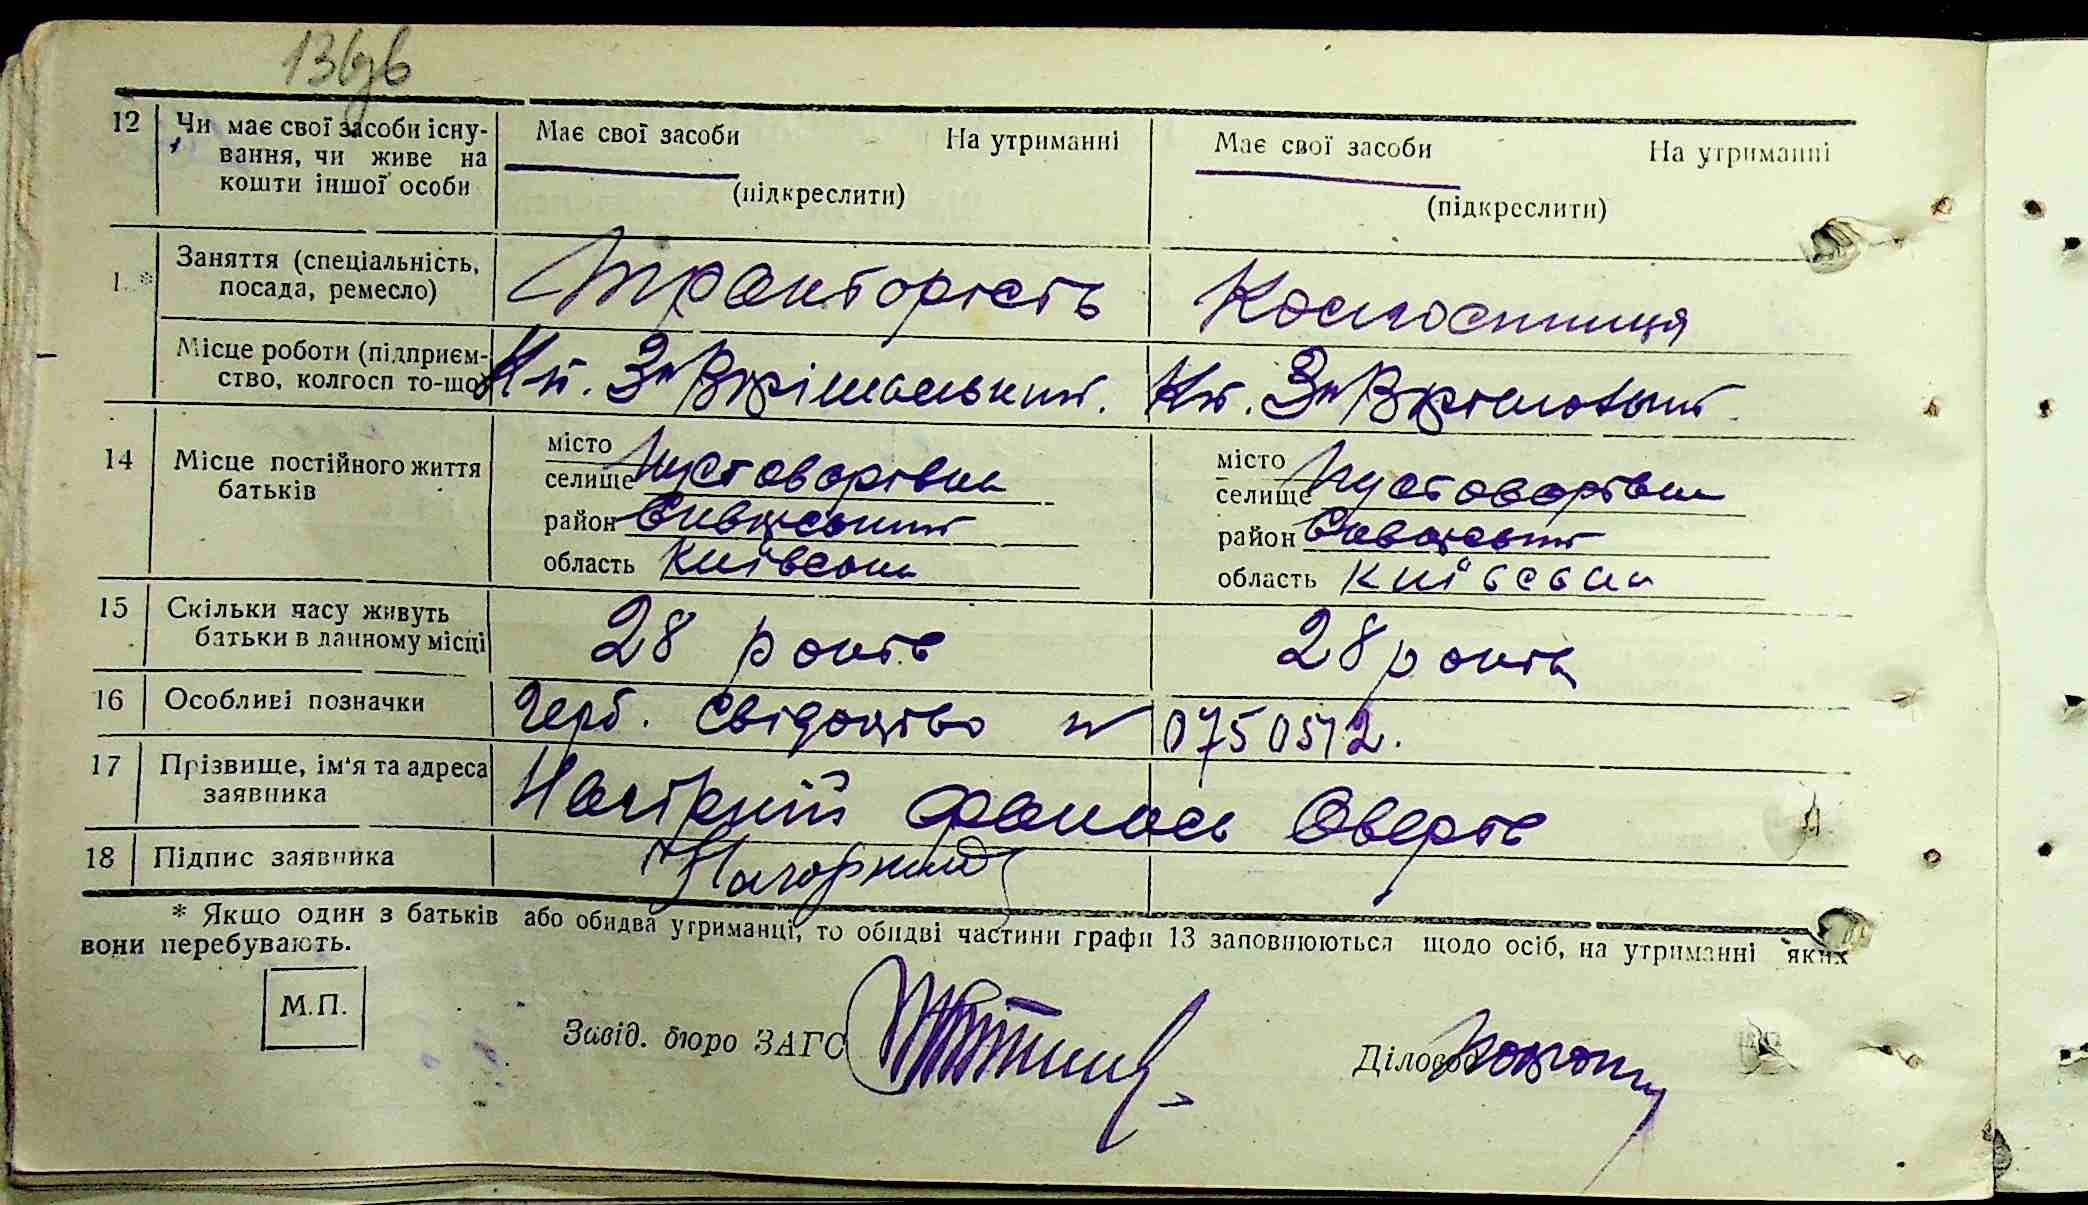 136зв
12 Чи має свої засоби існу- Має свої засоби На утриманні Має свої засоби На утриманні
вання, чи живе на
кошти іншої особи (підкреслити) (підкреслити)
1 * Заняття (спеціальність, Тракторість Колгоспниця
посада, ремесло)
Місце роботи (підприєм-
ство, колгосп то-що)
14 Місце постійного життя місто місто
батьків селище Пустоварівка селище Пустоварівка
район район
область Київська область Київська
15 Скільки часу живуть 28 років 28 років
батьки в данному місці
16 Особливі позначки Герб. свідоцтво № 0750512.
17 Прізвище, ім'я та адреса Нагірний Фанась Оверк.
заявника
18 Підпис заявника Нагорний
* Якщо один з батьків або обидва утриманці, то обидві частини графи 13 заповнюються щодо осіб, на утриманні яких
вони перебувають.
М.П.
Завід. бюро ЗАГС Діловод